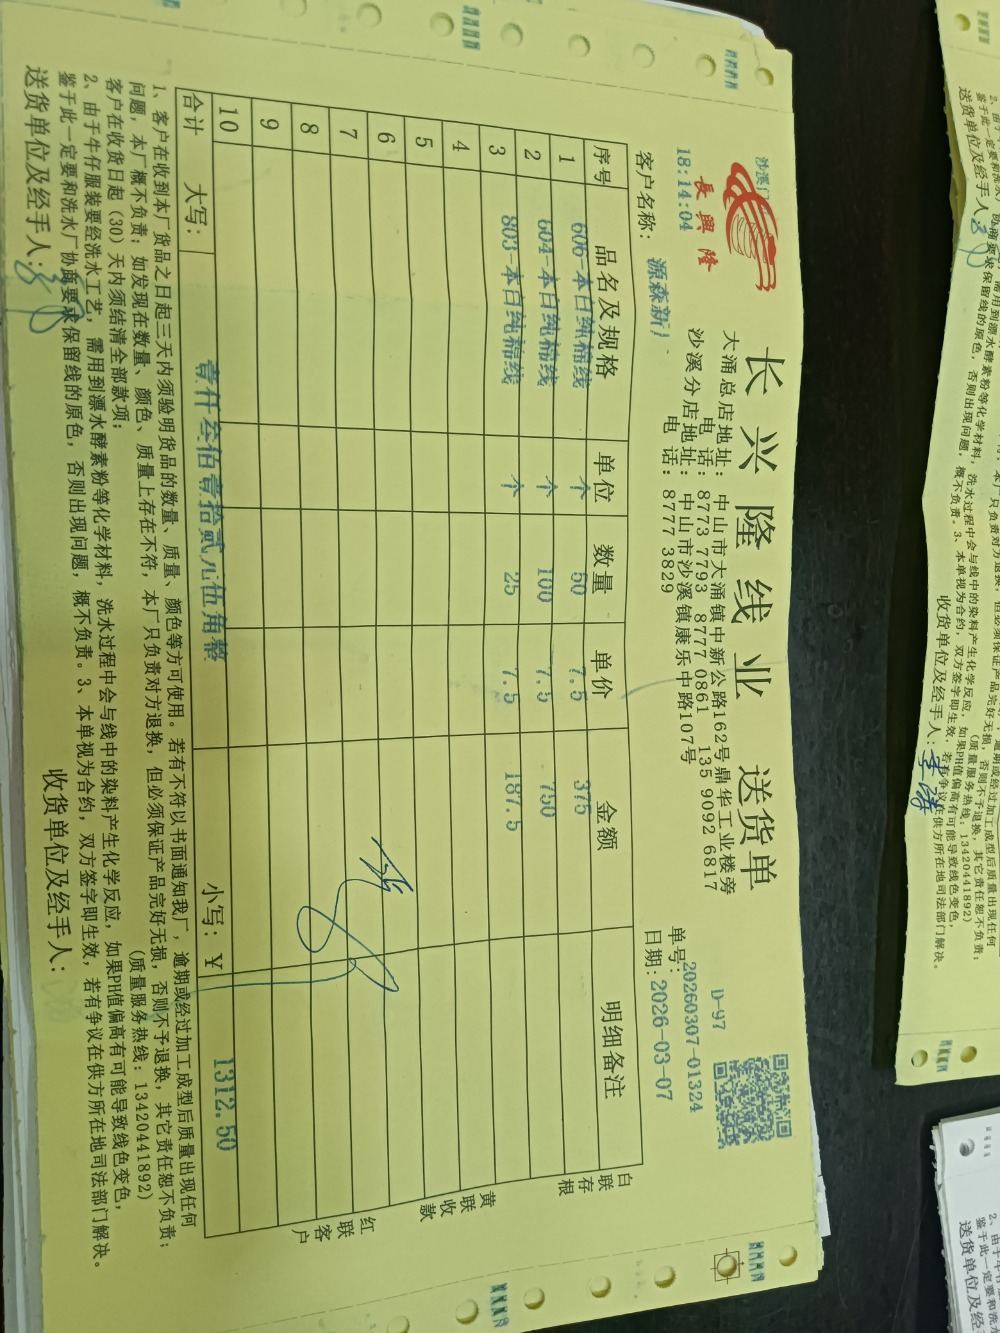 长兴隆线业 送货单
沙溪门
長興隆
18:14:04
大涌总店地址：中山市大涌镇中新公路162号鼎华工业楼旁
电 话：8773 7793 8777 0861 135 9092 6817
沙溪分店地址：中山市沙溪镇康乐中路107号
电 话：8777 3829
D-97
单号：20260307-01324
客户名称：源森新厂
日期：2026-03-07
序号 品名及规格 单位 数量 单价 金额 明细备注
1 606-本白纯棉线 个 50 7.5 375
2 604-本白纯棉线 个 100 7.5 750
3 803-本白纯棉线 个 25 7.5 187.5
4
5
6
7
8
9
10
合计 大写：壹仟叁佰壹拾贰元伍角整 小写：￥ 1312.50
白联存根
黄联收款
红联客户
1、客户在收到本厂货品之日起三天内须验明货品的数量、质量、颜色等方可使用。若有不符以书面通知我厂，逾期或经过加工成型后质量出现任何
问题，本厂概不负责；如发现在数量、颜色、质量上存在不符，本厂只负责对方退换，但必须保证产品完好无损，否则不予退换，其它责任恕不负责；
客户在收货日起（30）天内须结清全部款项； （质量服务热线：13420441892）
2、由于牛仔服装要经洗水工艺，需用到漂水酵素粉等化学材料，洗水过程中会与线中的染料产生化学反应，如果PH值偏高有可能导致线色变色，
鉴于此一定要和洗水厂协商要求保留线的原色，否则出现问题，概不负责。3、本单视为合约，双方签字即生效，若有争议在供方所在地司法部门解决。
送货单位及经手人： 收货单位及经手人：
（质量服务热线：13420441892）
送货单位及经手人： 收货单位及经手人：
送货单位及经手人